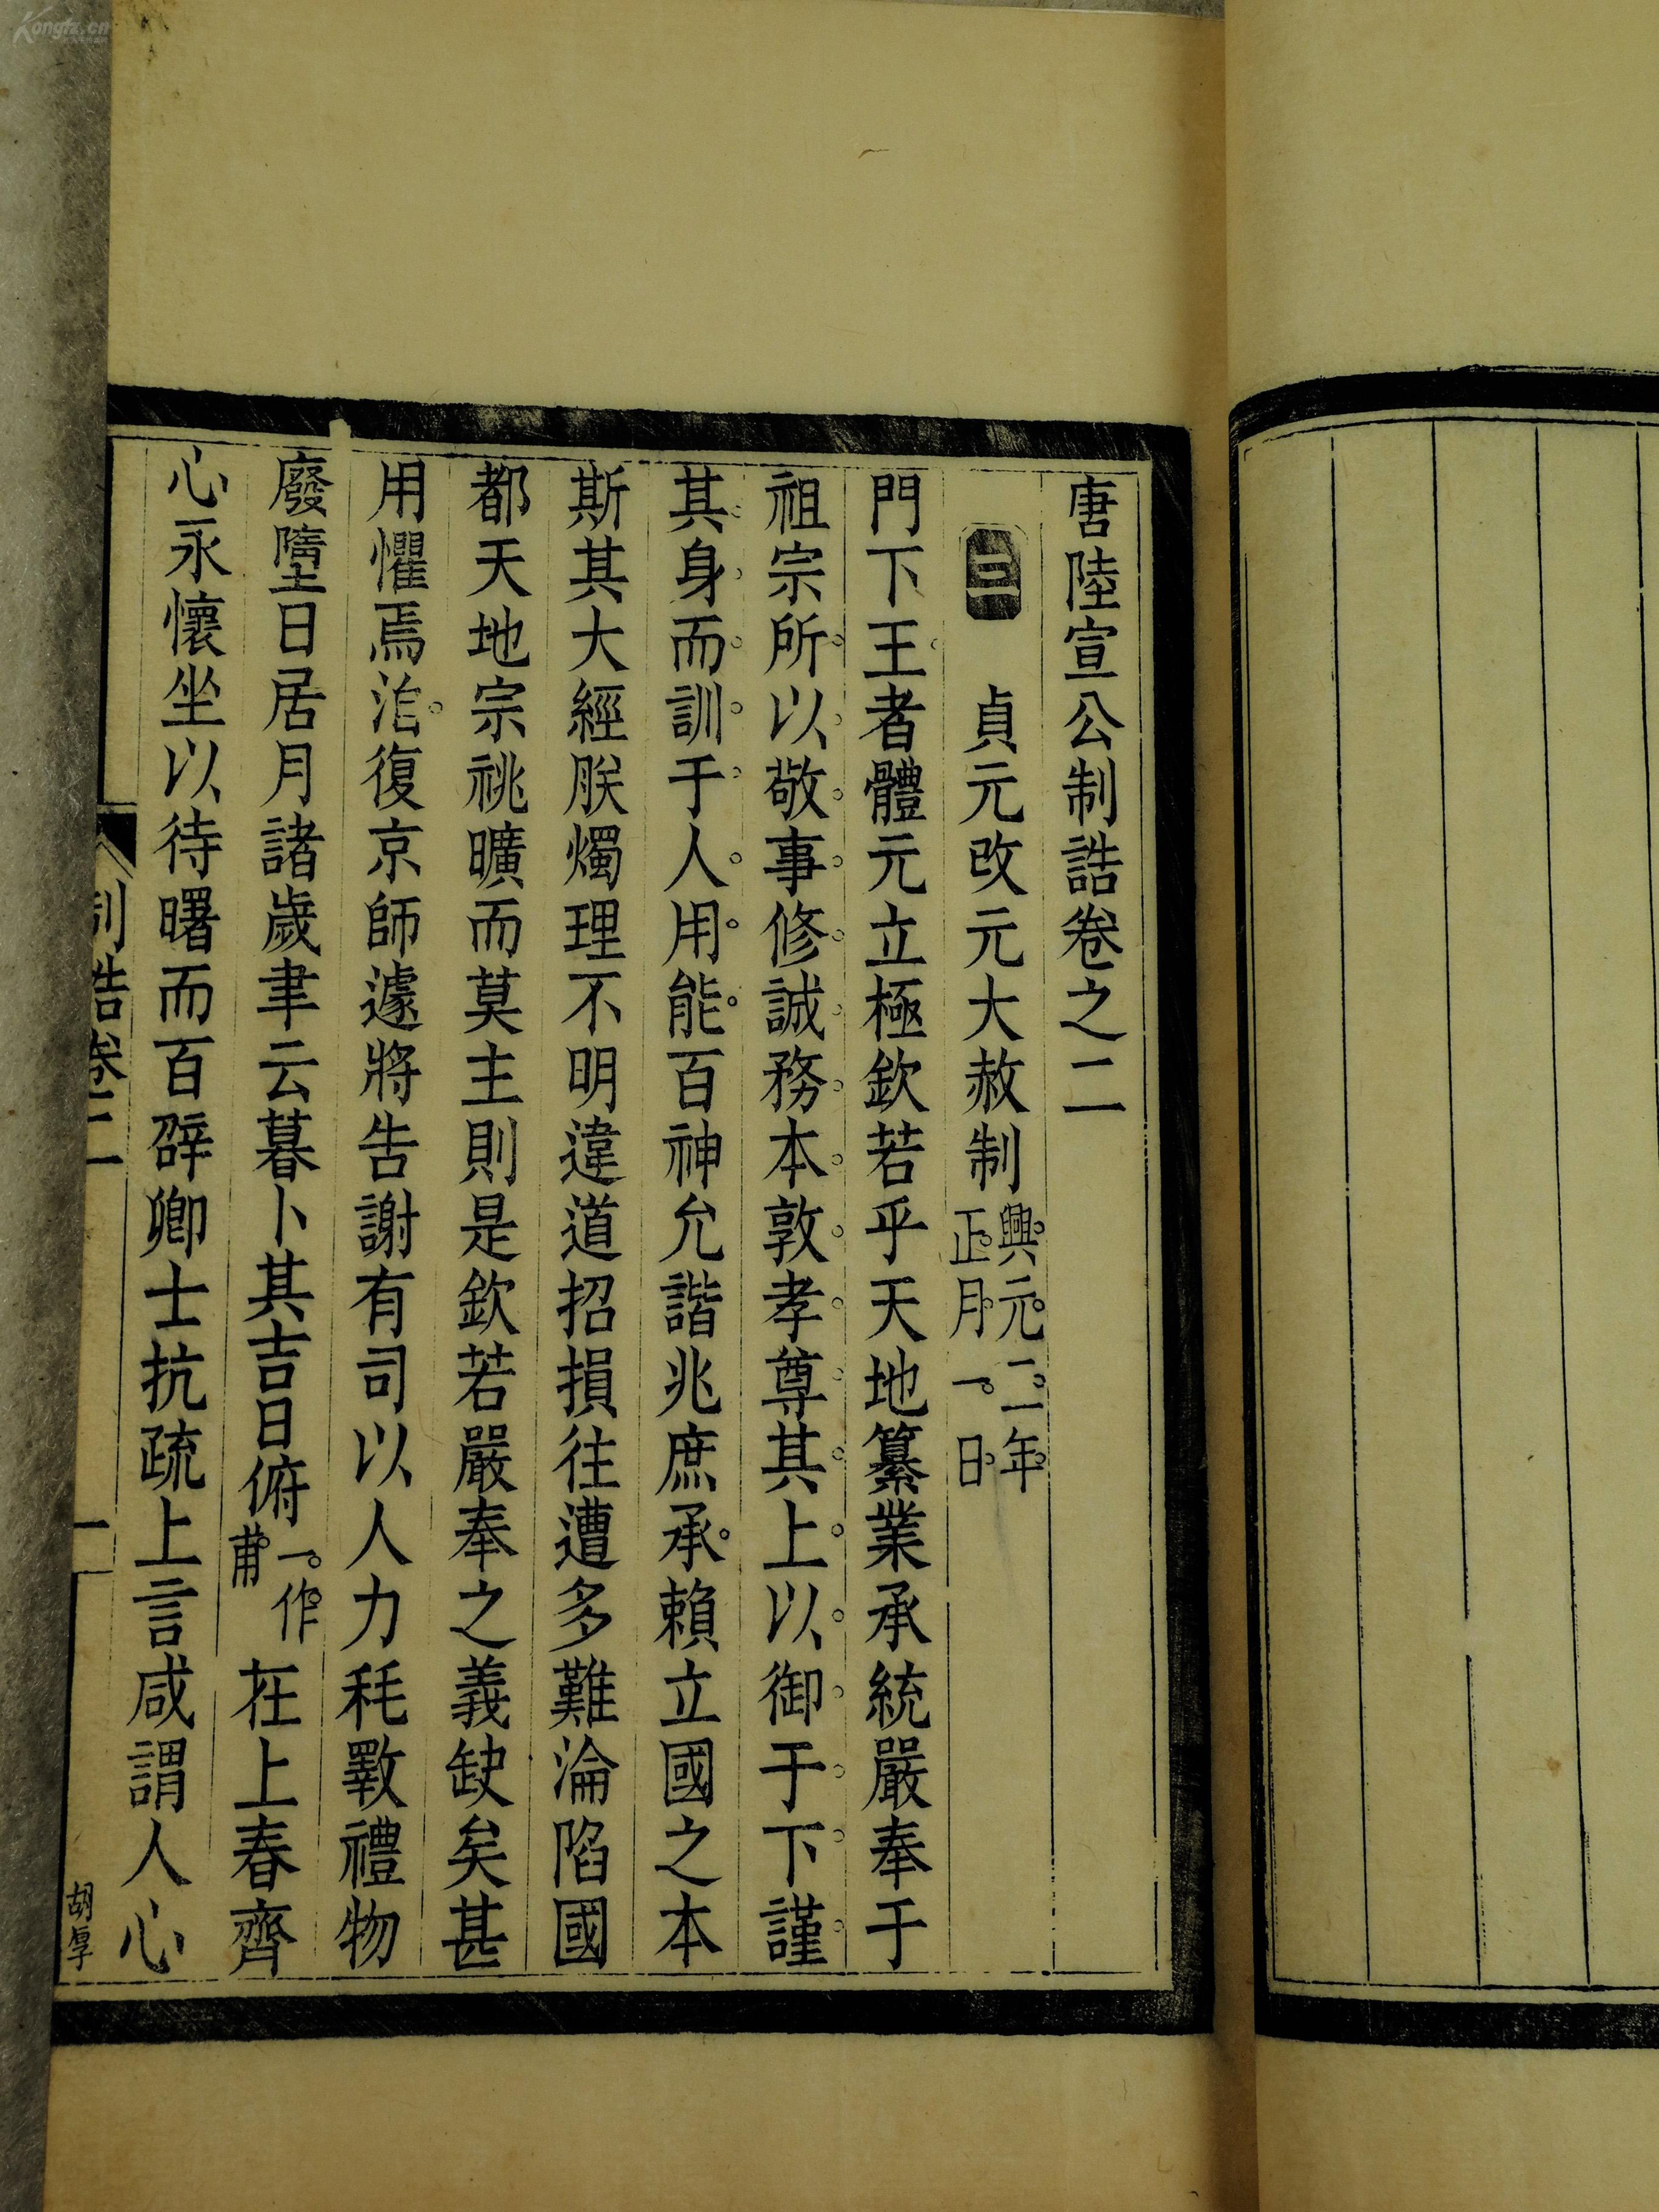 唐陸宣公制誥卷之二
三 貞元改元大赦制 興元二年正月一日
門下王者體元立極欽若乎天地纂業承統嚴奉于
祖宗所以敬事修誠務本敦孝尊其上以御于下謹
其身而訓于人用能百神允諧兆庶承賴立國之本
斯其大經朕燭理不明違道招損往遭多難淪陷國
都天地宗祧曠而莫主則是欽若嚴奉之義缺矣甚
用懼焉洎復京師遽將告謝有司以人力秏斁禮物
廢墮日居月諸歲聿云暮卜其吉日俯一作甫在上春齊
心永懷坐以待曙而百辟卿士抗疏上言咸謂人心
制誥卷二
一
胡厚
Kongfz.cn